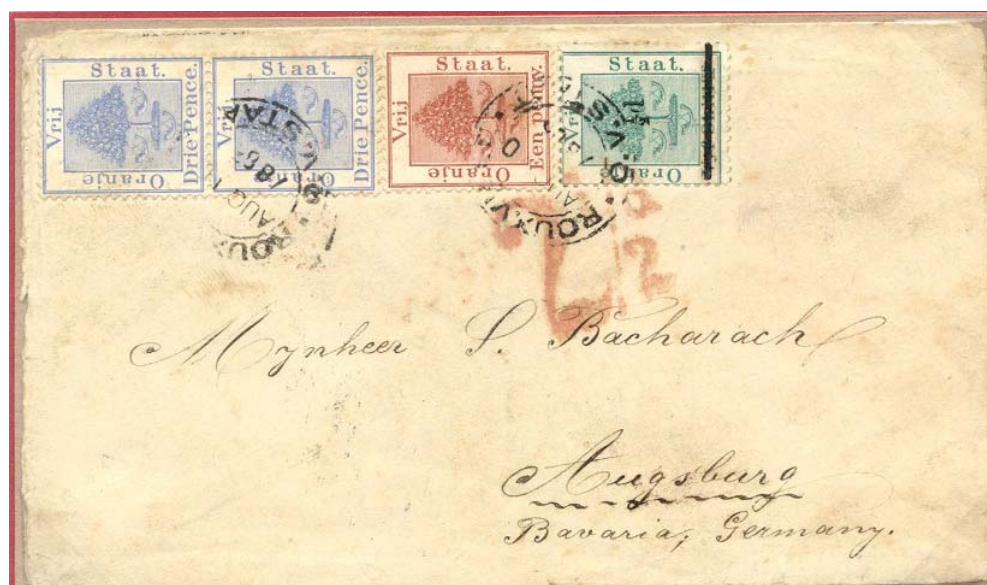 Vrij Staat. Drie Pence. Oranje
Vrij Staat. Drie Pence. Oranje
Vrij Staat. Een penny. Oranje
Staat. Oranje
AUG
O.V.STA
Mynheer S. Bacharach
Augsburg
Bavaria, Germany.